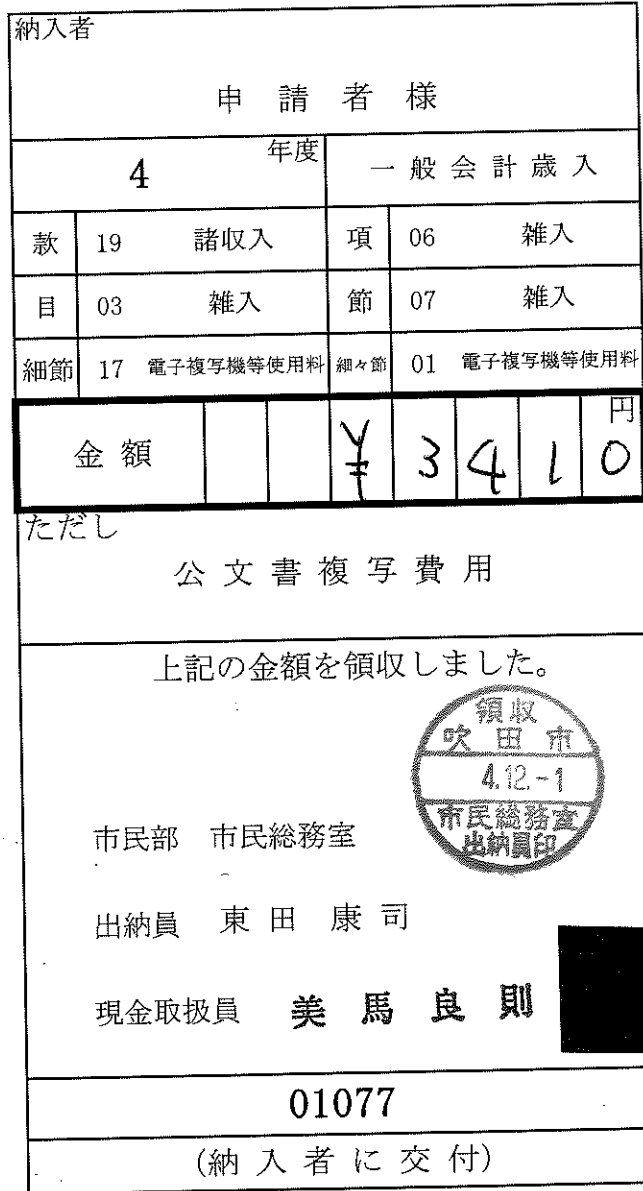 納入者
申請者様
4 年度 一般会計歳入
款 19 諸収入 項 06 雑入
目 03 雑入 節 07 雑入
細節 17 電子複写機等使用料 細々節 01 電子複写機等使用料
金額 ¥3410 円
ただし
公文書複写費用
上記の金額を領収しました。
領収
吹田市
4.12.-1
市民総務室
出納員印
市民部 市民総務室
出納員 東田康司
現金取扱員 美馬良則
01077
(納入者に交付)